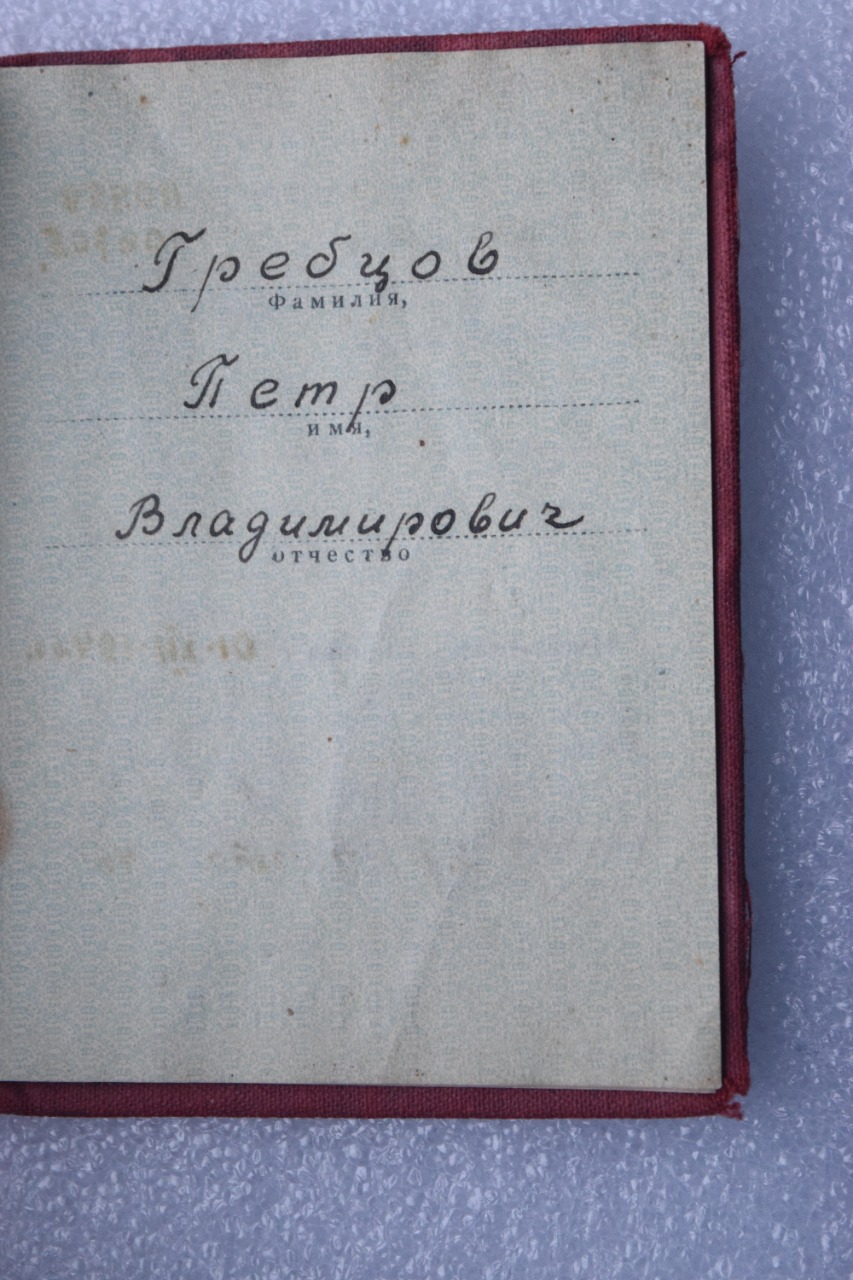 Гребцов
Фамилия,
Петр
имя,
Владимирович
отчество